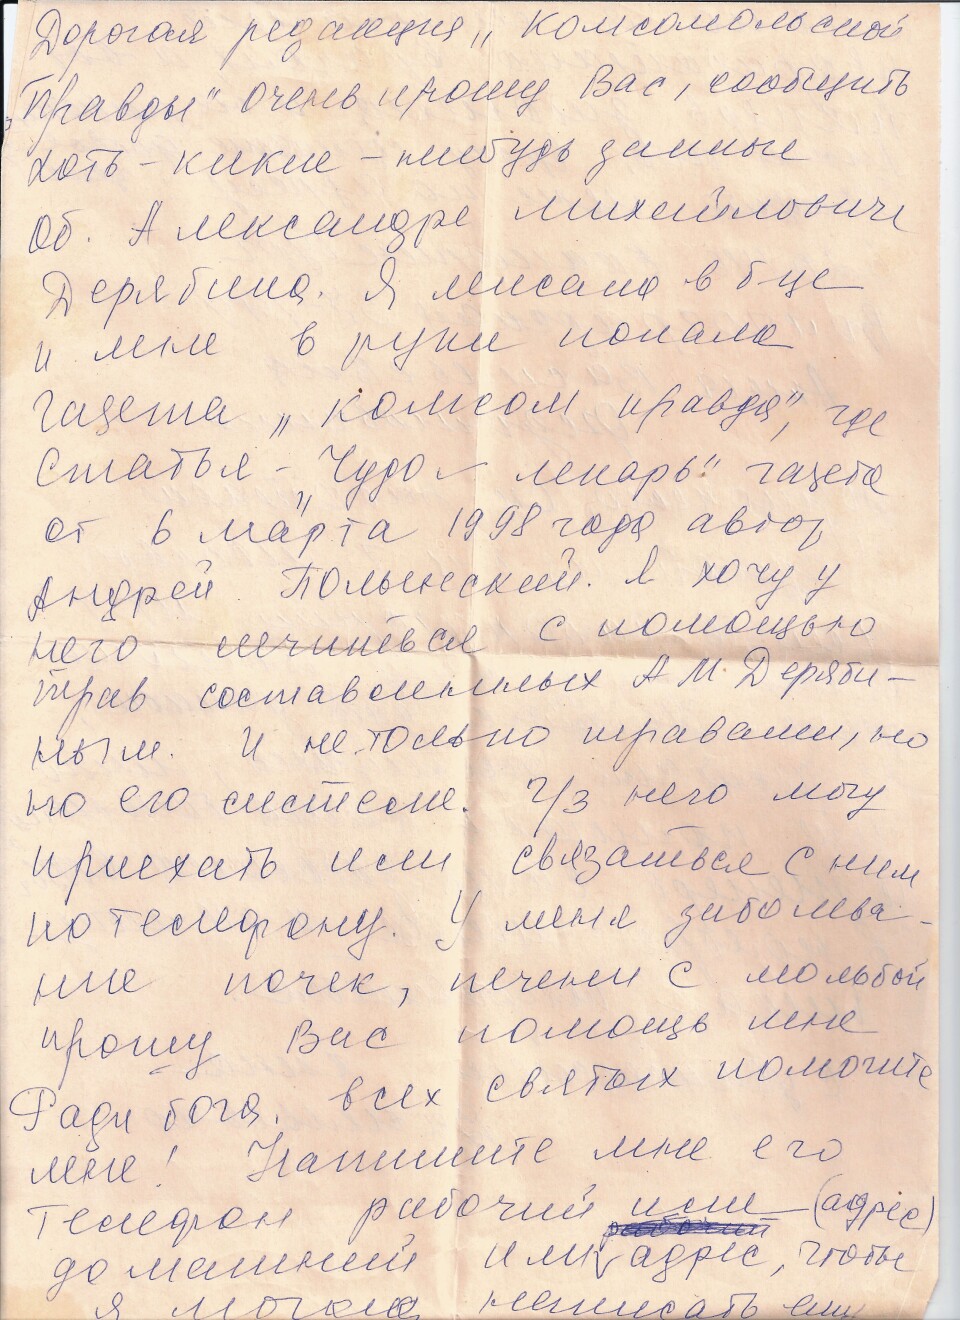 Дорогая редакция „Комсомольской
Правды" очень прошу Вас, сообщить
хоть-какие-нибудь данные
об. Александре Михайловиче
Дерябина. Я лежала в б-це
и мне в руки попала
газета „комсом правда", где
статья - „Чудо - лекарь" газета
от 6 марта 1998 года автор
Андрей Полынский. Я хочу у
него лечиться с помощью
трав составленных А.М. Деряби-
ным. И не только травами, но
по его системе. Ч/з него могу
приехать или связаться с ним
по телефону. У меня заболева-
ние почек, печени с мольбой
прошу Вас помощь мне
Ради бога. всех святых помогите
мне! Напишите мне его
телефон рабочий или (адрес)
домашний или адрес, чтобы
я могла написать ему